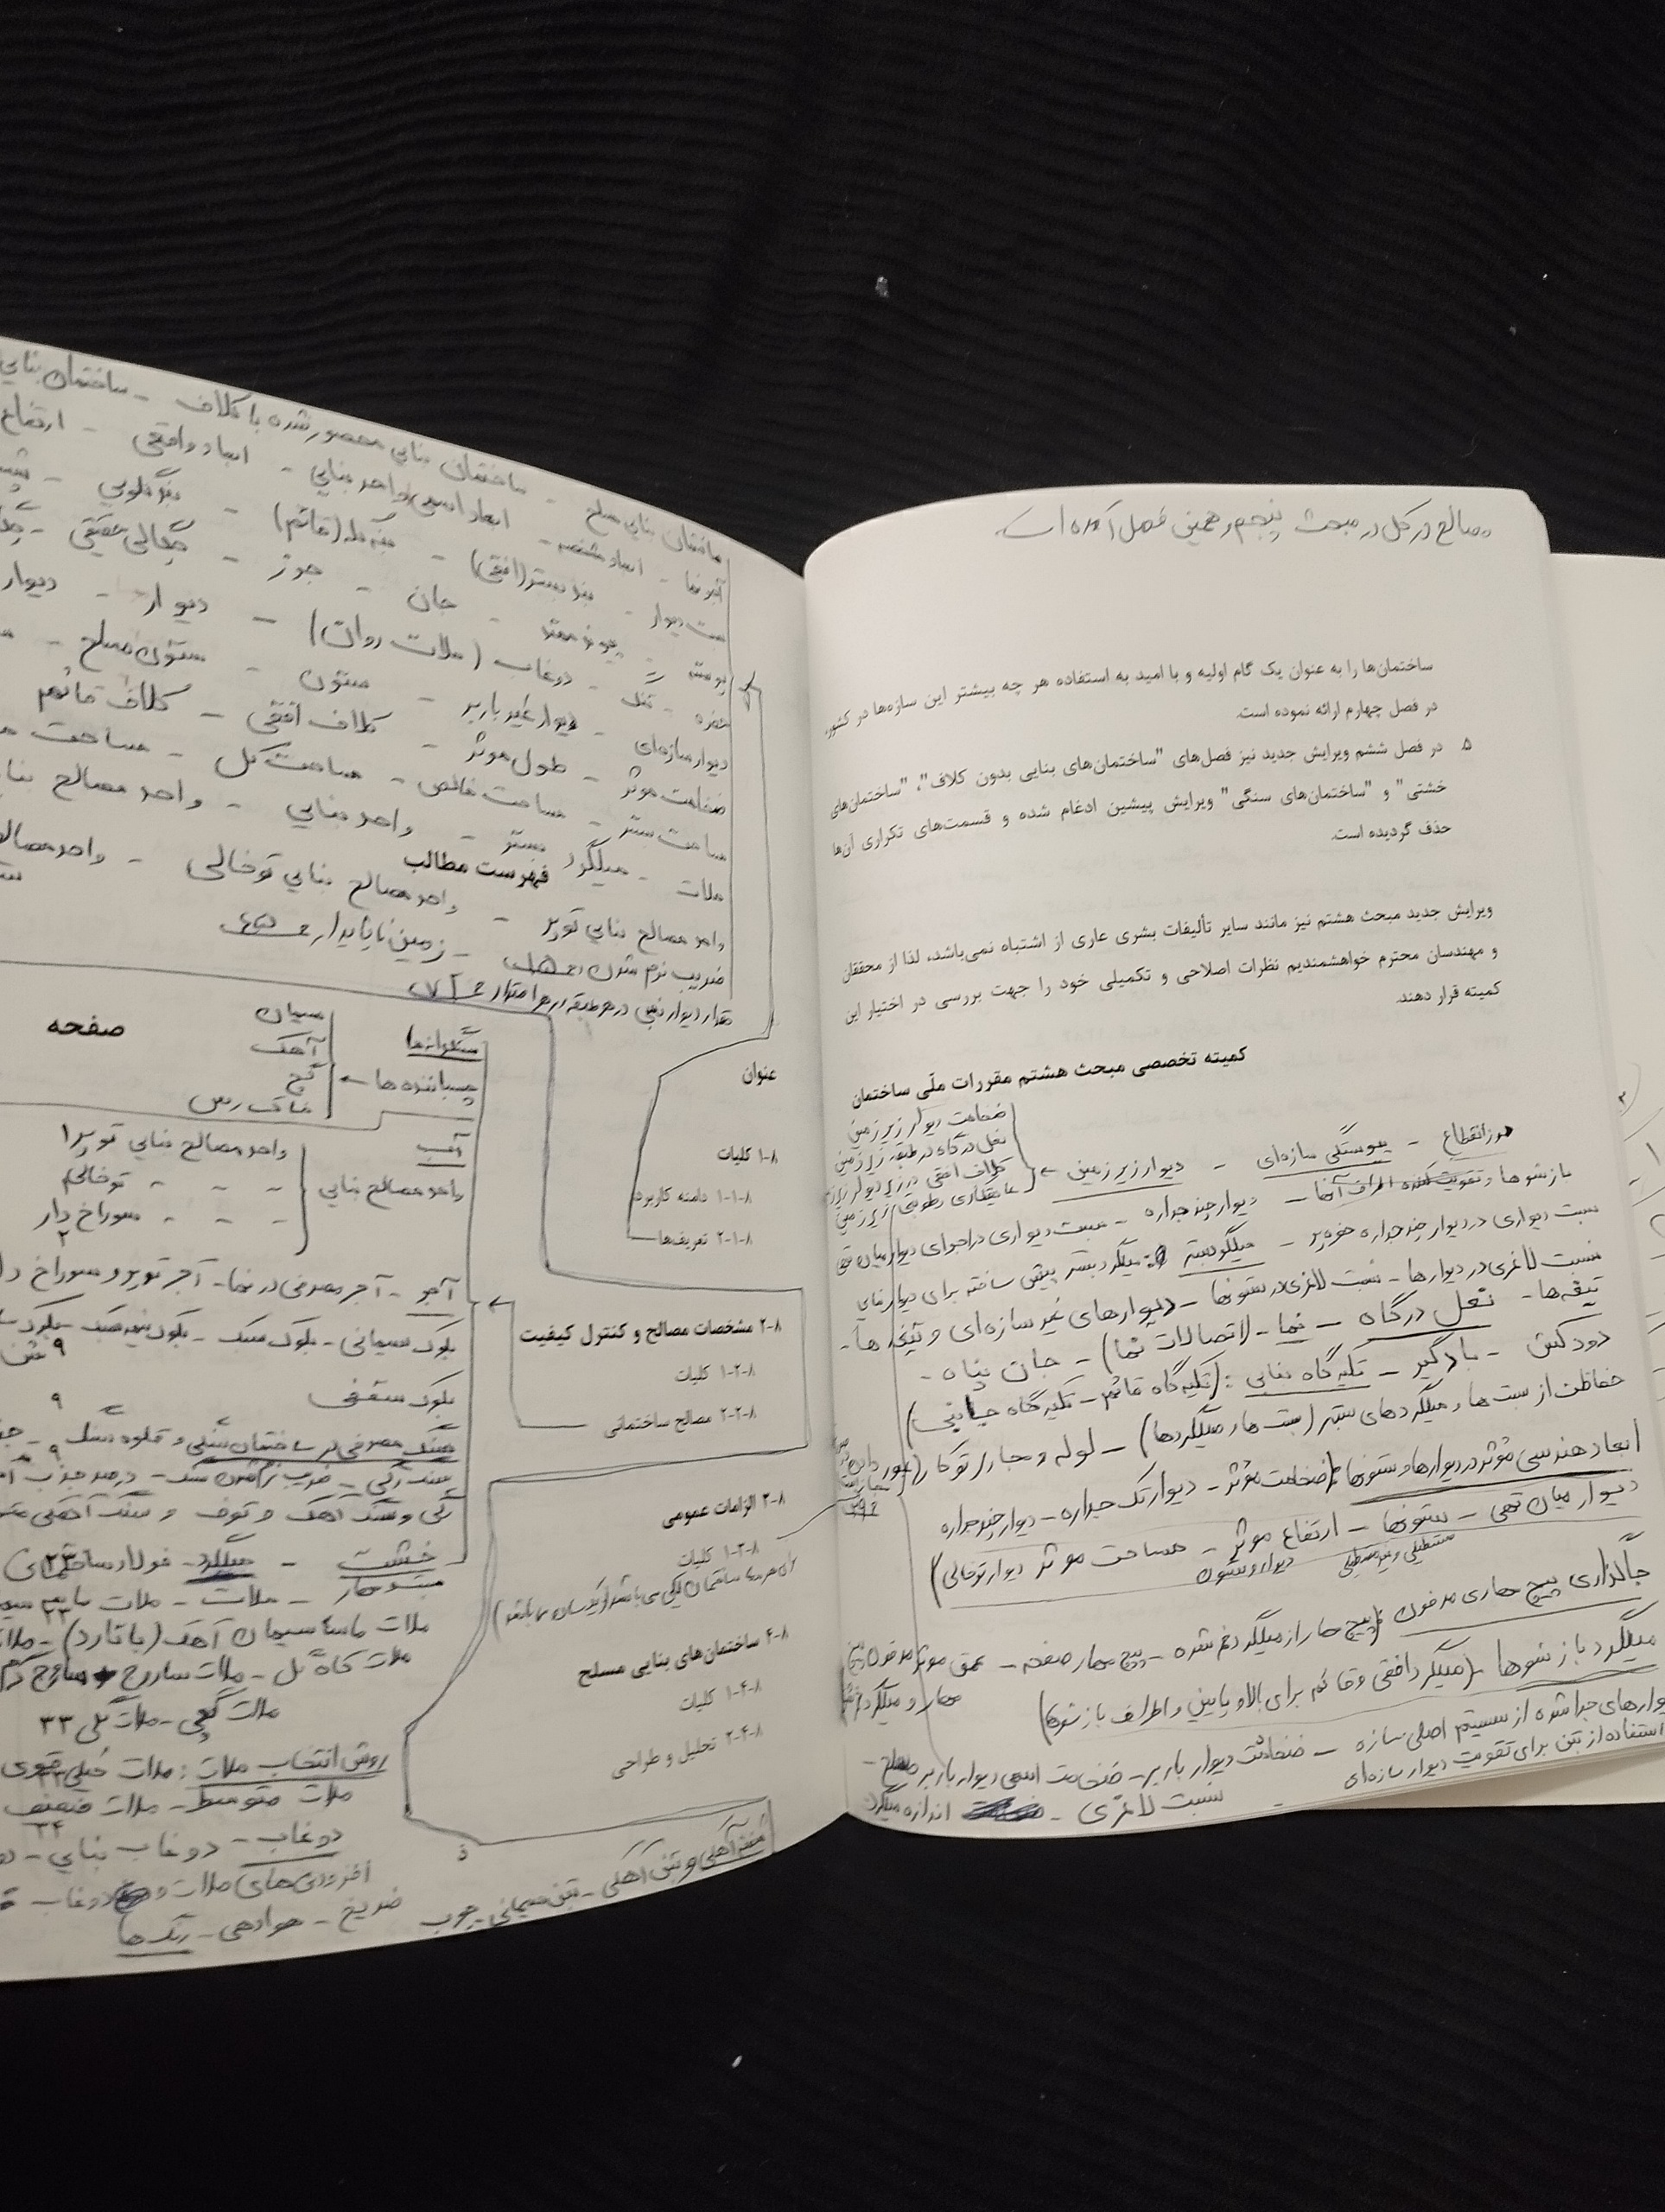 مصالح در کل در مبحث پنجم و همین فصل آمده است
ساختمان‌ها را به عنوان یک گام اولیه و با امید به استفاده هر چه بیشتر این سازه‌ها در کشور،
در فصل چهارم ارائه نموده است.
۵. در فصل ششم ویرایش جدید نیز فصل‌های "ساختمان‌های بنایی بدون کلاف"، "ساختمان‌های
خشتی" و "ساختمان‌های سنگی" ویرایش پیشین ادغام شده و قسمت‌های تکراری آن‌ها
حذف گردیده است.
ویرایش جدید مبحث هشتم نیز مانند سایر تألیفات بشری عاری از اشتباه نمی‌باشد، لذا از محققان
و مهندسان محترم خواهشمندیم نظرات اصلاحی و تکمیلی خود را جهت بررسی در اختیار این
کمیته قرار دهند.
کمیته تخصصی مبحث هشتم مقررات ملّی ساختمان
ضخامت دیوار زیرزمین
نعل درگاه در طبقه زیرزمین
کلاف افقی در زیر دیوار زیرزمین
عایقکاری رطوبتی زیرزمین
درز انقطاع - پیوستگی سازه‌ای - دیوار زیرزمین
بازشوها و تقویت اطراف آنها - دیوار چند جداره - بست دیواری در اجرای دیوار میان تهی
بست دیواری در دیوار چند جداره - میلگرد بستر میلگرد بستر پیش ساخته برای دیوارهای
نسبت لاغری در دیوارها - نسبت لاغری در ستونها - دیوارهای غیر سازه‌ای و تیغه ها -
تیغه‌ها - نعل درگاه - نما - (اتصالات نما) - جان پناه -
دودکش - بادگیر - تکیه گاه بنایی : (تکیه گاه قائم - تکیه گاه جانبی)
حفاظت از بست ها و میلگردهای بستر (بست ها و میلگردها) - لوله و مجاری توکار
ابعاد هندسی مؤثر در دیوارها و ستونها (ضخامت مؤثر - دیوار تک جداره - دیوار چند جداره
دیوار میان تهی - ستونها - ارتفاع موثر - مساحت موثر دیوار توخالی)
مستطیلی و غیر مستطیلی دیوار و ستون
جاگذاری پیچ مهاری مدفون (پیچ مهار از میلگرد خم شده - پیچ مهار صفحه - عمق موثر مدفون
میلگرد بازشوها - (میلگرد افقی و قائم برای بالا و پایین و اطراف بازشوها) مهار و میلگرد
دیوارهای جدا شده از سیستم اصلی سازه - ضخامت دیوار باربر - ضخامت اسمی دیوار باربر مسلح -
استفاده از بتن برای تقویت دیوار سازه‌ای
نسبت لاغری - اندازه میلگرد
ساختمان بنایی مسلح - ساختمان بنایی محصور شده با کلاف - ساختمان بنایی
آجرنما - ابعاد مشخصه - ابعاد اسمی واحد بنایی - ابعاد واقعی - ارتفاع
بست دیوار - بند بستر (افقی) - بند کله (قائم) - بندکشی
جان - جرز - چگالی حقیقی
حفره - تنگ - دوغاب (ملات روان) - دیوار - دیوار
دیوار سازه‌ای - دیوار غیر باربر - ستون - ستون مسلح
ضخامت موثر - طول موثر - کلاف افقی - کلاف قائم
مساحت بستر - مساحت خالص - مساحت کل - مساحت
ملات - میلگرد بستر - واحد بنایی - واحد مصالح
فهرست مطالب
واحد مصالح بنایی توپر - واحد مصالح بنایی توخالی - واحد مصالح
ضریب نرم شدن - زمین ناپایدار
مقدار دیوار نسبی در هر طبقه در هر امتداد
عنوان
صفحه
سنگدانه‌ها
چسباننده ها
سیمان
آهک
گچ
خاک رس
آب
واحد مصالح بنایی
واحد مصالح بنایی توپر
- - - توخالی
- - - سوراخ دار
۸-۱ کلیات
۸-۱-۱ دامنه کاربرد
۸-۱-۲ تعریف‌ها
آجر - آجر مصرفی در نما - آجر توپر و سوراخ
بلوک سیمانی - بلوک سبک - بلوک نیمه سبک
بلوک سقفی
۸-۲ مشخصات مصالح و کنترل کیفیت
۸-۲-۱ کلیات
۸-۲-۲ مصالح ساختمانی
سنگ مصرفی در ساختمان سنگی و قلوه سنگ
خشت - میلگرد - فولاد ساختمانی
ملات ماسه سیمان آهک (باتارد)
ملات کاه گل - ملات ساروج
ملات گچی - ملات گلی ۳۳
روش انتخاب ملات : ملات خیلی قوی
ملات متوسط - ملات ضعیف
دوغاب - دوغاب بنایی
افزودنی‌های ملات و دوغاب
ضدیخ - هوادهی - رنگ ها
۸-۳ الزامات عمومی
۸-۳-۱ کلیات
۸-۴ ساختمان‌های بنایی مسلح
۸-۴-۱ کلیات
۸-۴-۲ تحلیل و طراحی
شفته آهکی و بتن آهکی - بتن سیمانی - چوب